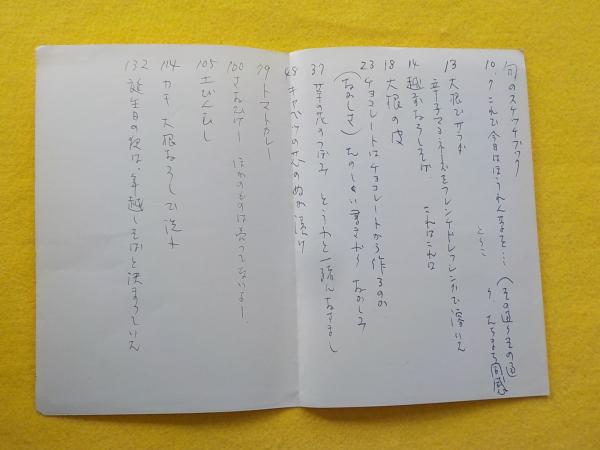 旬のスケッチブック
10.7 これで今日はほうれん草を… (その通りその通
り、たちまち同感
とうこ
13 大根でサラダ
辛子マヨネーズをフレンチドレッシングで溶いた
14 越前おろしそば これはこれは
18 大根の皮
23 チョコレートはチョコレートから作るのか
(おかしさ) たのしくい おかしみ
37 菜の花のつぼみ とうふと一緒に
48 キャベツの のぬか漬け
79 トマトカレー
100 ほかのものは売ってないよー。
105 土びんむし
114 カキ 大根おろしで洗火
132 誕生日の夜は、年越しそばと決まっていた